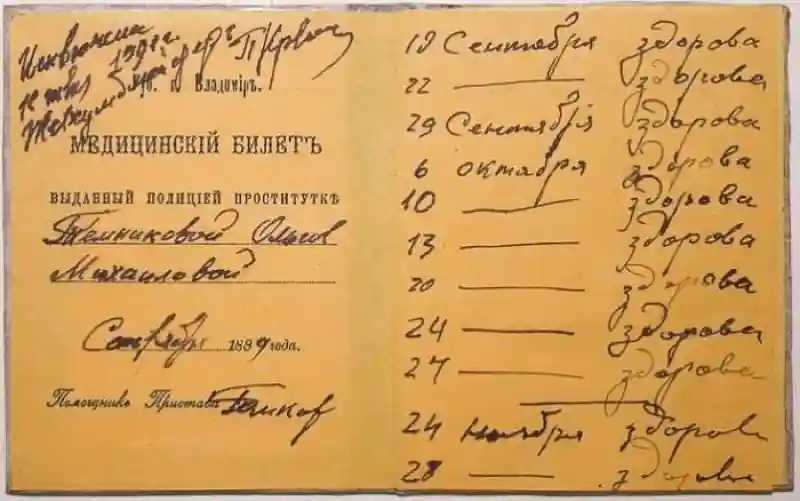 Исключена
1901 г.
г. Владимiръ.
МЕДИЦИНСКIЙ БИЛЕТЪ
ВЫДАННЫЙ ПОЛИЦIЕЙ ПРОСТИТУТКѢ
Темниковой Ольгѣ
Михаиловой
Сентября 1889 года.
Помощникъ Пристава
18 Сентября здорова
22 — здорова
29 Сентября здорова
6 октября здорова
10 — здорова
13 — здорова
20 — здорова
24 — здорова
27 — здорова
24 ноября здорова
28 — здорова